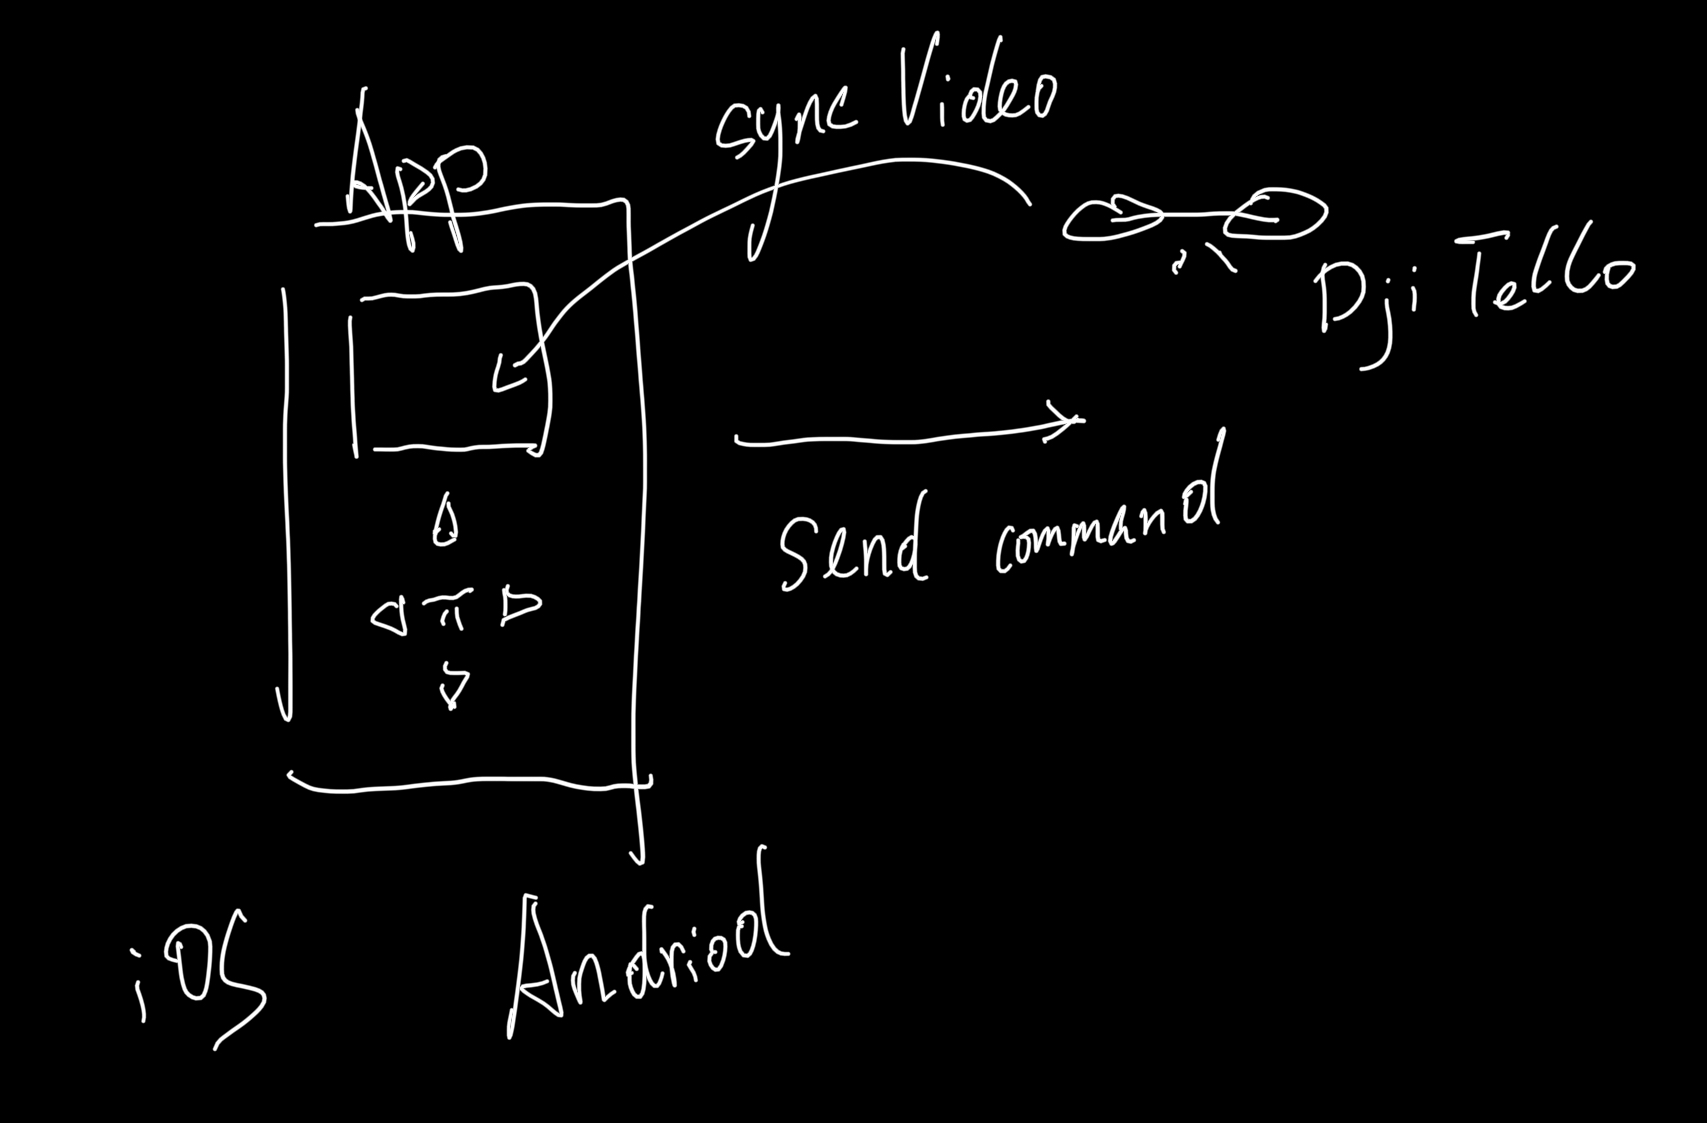 App
sync Video
Dji Tello
Send command
iOS
Andriod